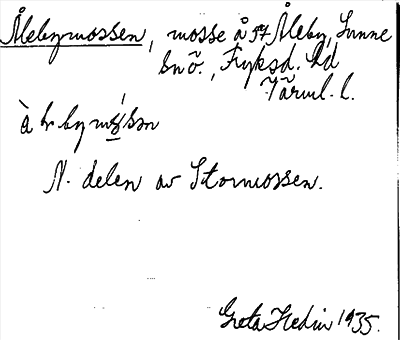 Ålebymossen, mosse å Åleby, Sunne
snö., Fryksd. hd
Värml. l.
N. delen av Stormossen.
Greta Hedin 1935.